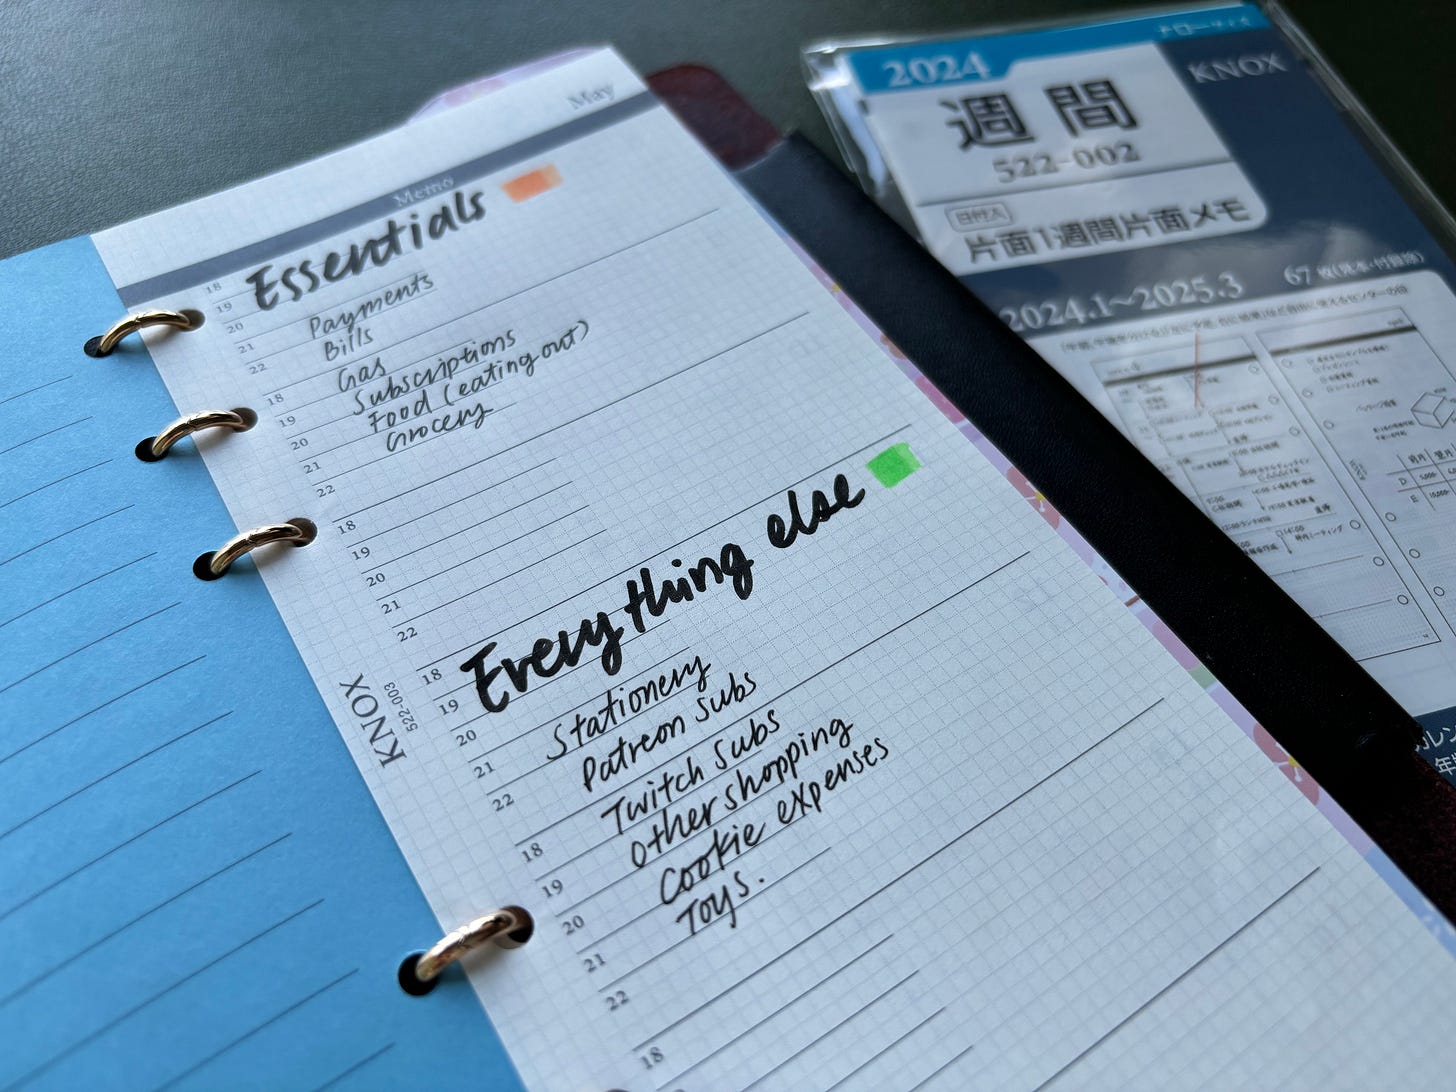 May
Memo
Essentials
Payments
Bills
Gas
Subscriptions
Food (eating out)
Grocery
Everything else
Stationery
Patreon subs
Twitch subs
Other shopping
Cookie expenses
Toys.
18
19
20
21
22
18
19
20
21
22
18
19
20
21
22
18
19
20
21
22
18
19
20
21
22
18
KNOX
522-003
2024
KNOX
週間
522-002
日付入
片面1週間片面メモ
2024.1~2025.3
67